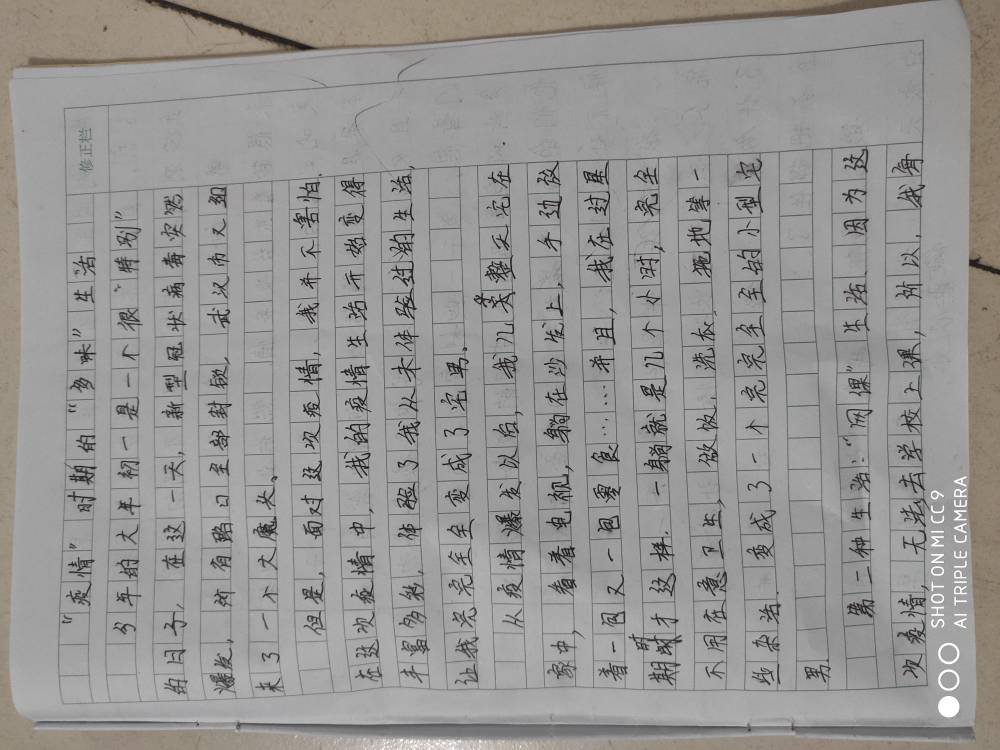 修正栏
"疫情"时期的"多味"生活
今年的大年初一是一个很"特别"
的日子,在这一天,新型冠状病毒突然
爆发,所有路口全部封锁,武汉市又迎
来了一个大魔头。
但是,面对这次疫情,我并不害怕.
在这次疫情中,我的疫情生活开始变得
丰富多彩,体验了我从未体验过的生活,
让我完完全全变成了宅男。
从疫情爆发以后,我几乎整天宅在
家中,看着电视,躺在沙发上,手边放
着一包又一包零食……并且,我在过星
期时才这样.一躺就是几个小时,完全
不用在意卫生,做饭,洗衣,拖地等一
些杂活.变成了一个完完全全的小型宅
男
第二种生活:"网课"生活.因为这
次疫情,无法去学校上课,所以,我每
SHOT ON MI CC 9
AI TRIPLE CAMERA